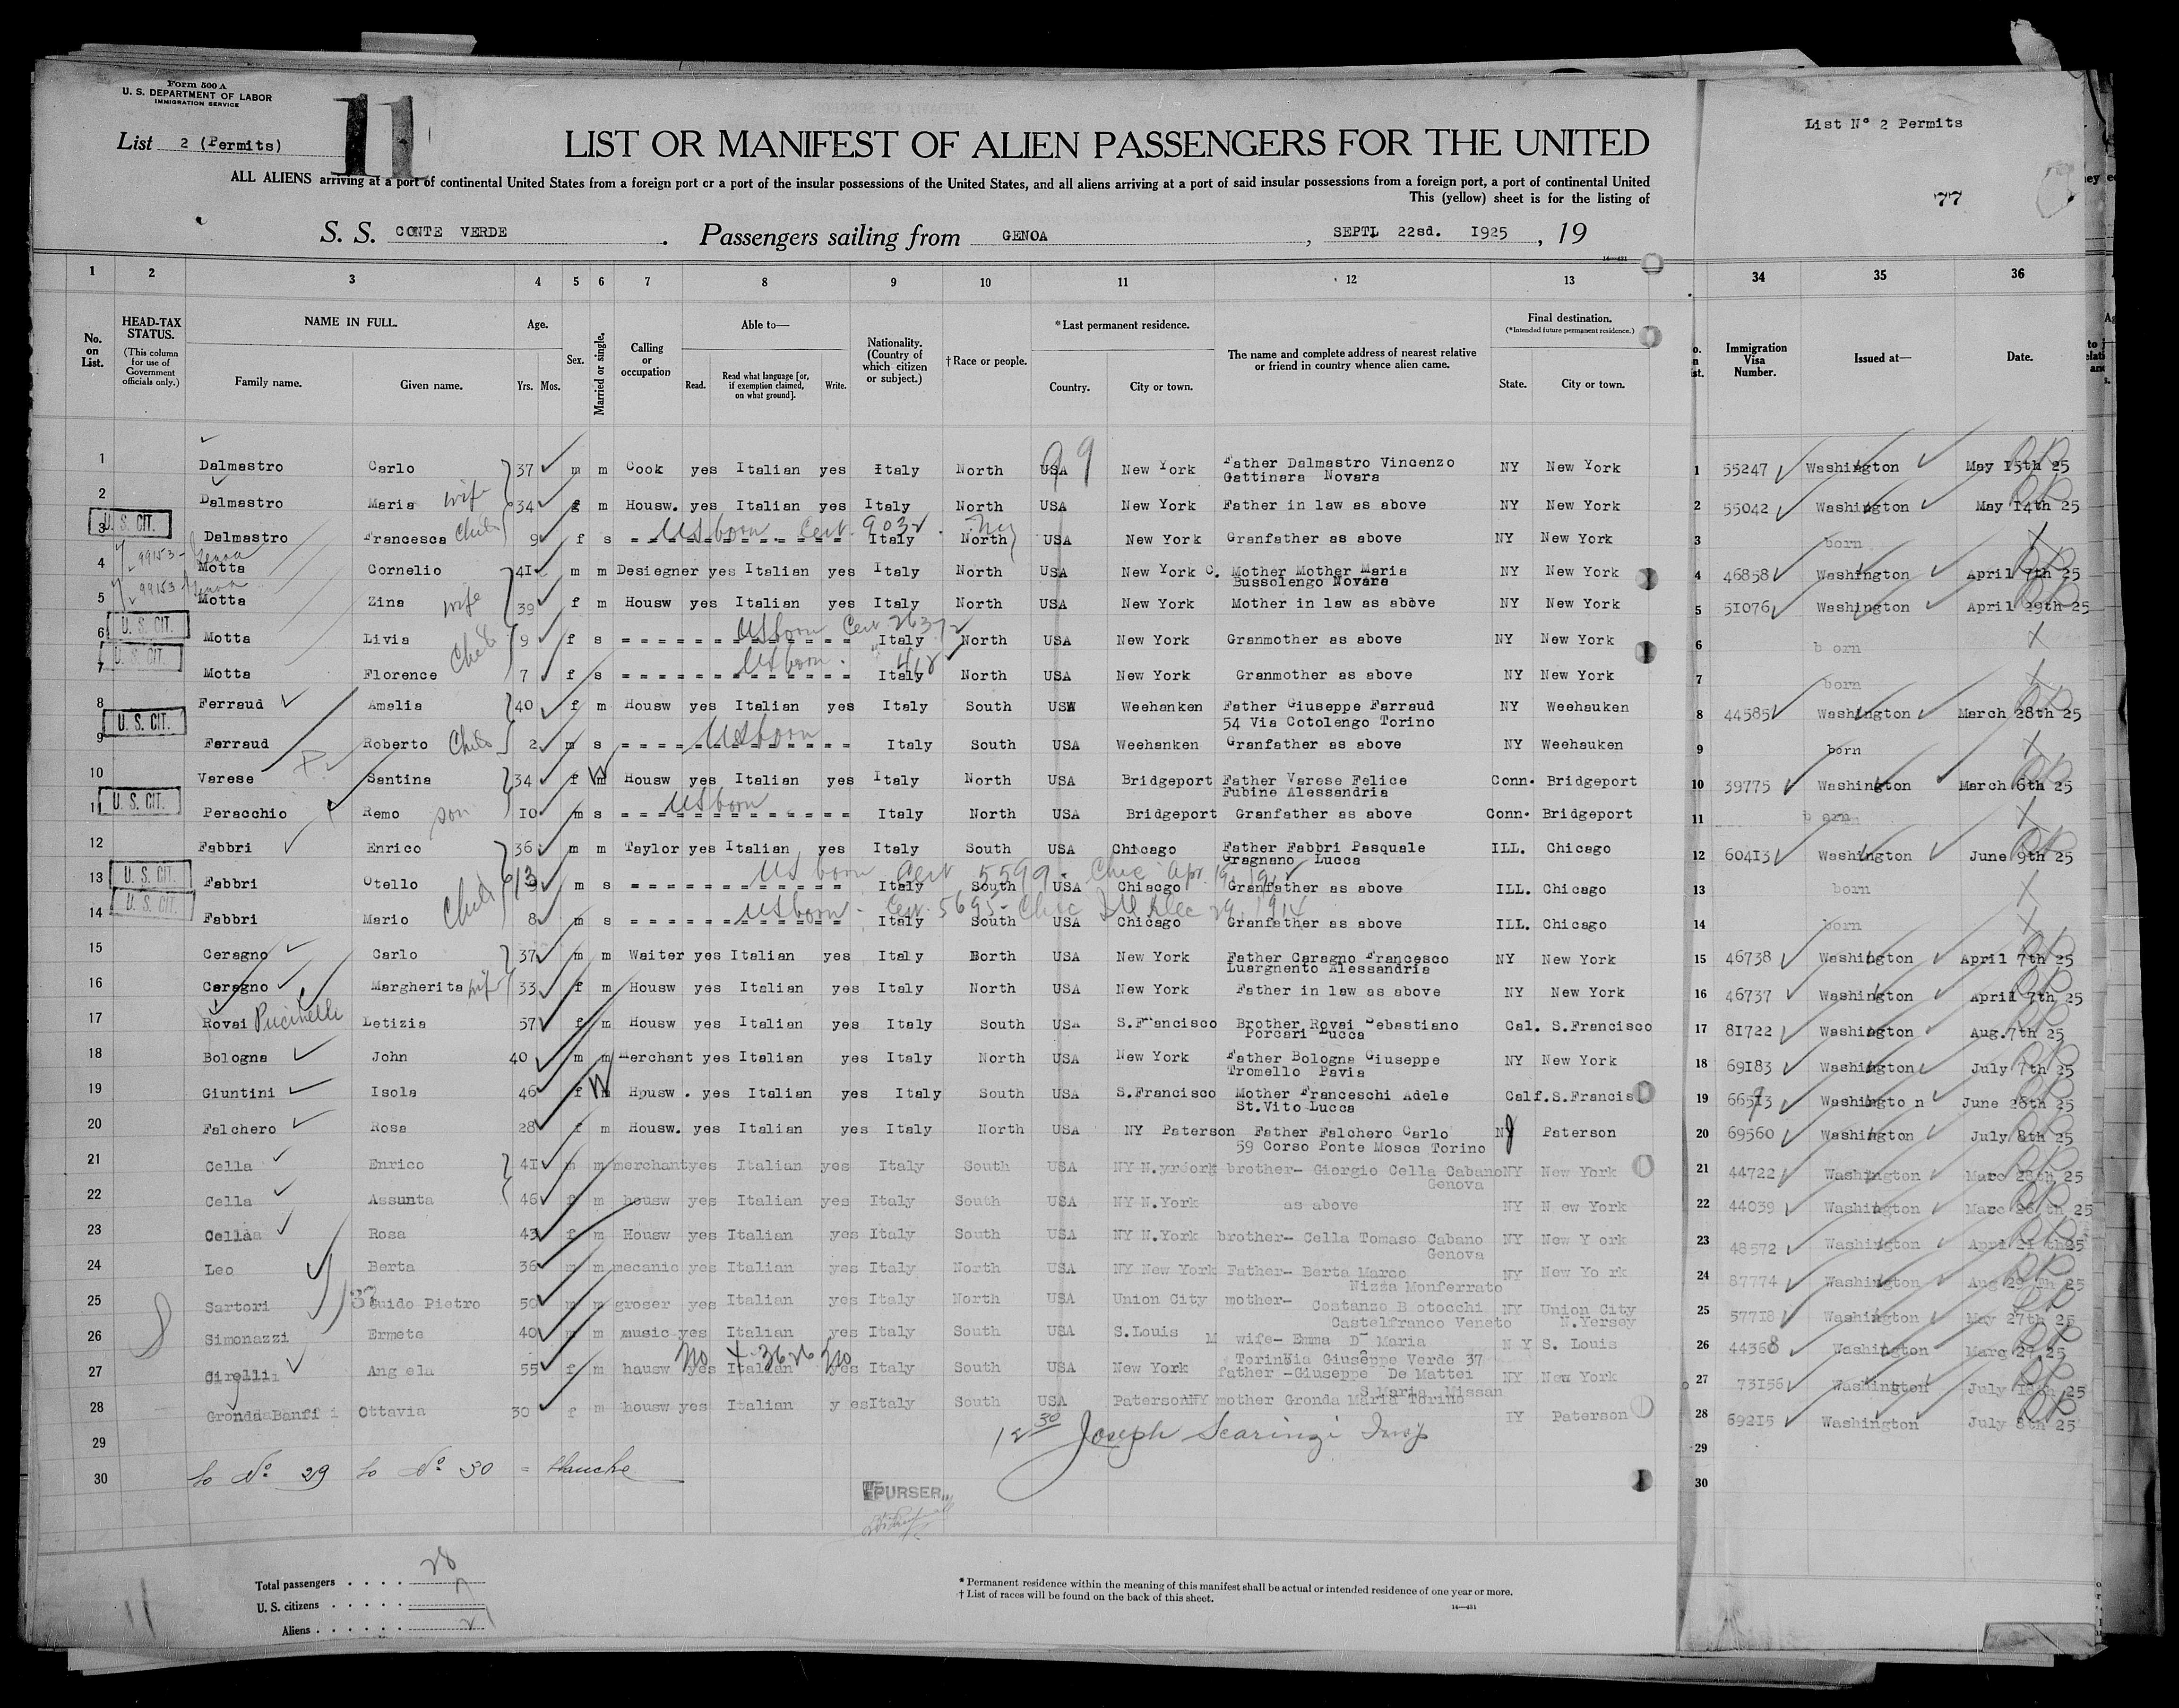 Form 500 A
U. S. DEPARTMENT OF LABOR
IMMIGRATION SERVICE
11
List 2 (Permits)
LIST OR MANIFEST OF ALIEN PASSENGERS FOR THE UNITED
ALL ALIENS arriving at a port of continental United States from a foreign port or a port of the insular possessions of the United States, and all aliens arriving at a port of said insular possessions from a foreign port, a port of continental United
This (yellow) sheet is for the listing of
S. S. CONTE VERDE . Passengers sailing from GENOA , SEPTL 22sd. 1925 , 19
List N° 2 Permits
77
1 2 3 4 5 6 7 8 9 10 11 12 13 34 35 36
No. on List.
HEAD-TAX STATUS.
(This column for use of Government officials only.)
NAME IN FULL.
Family name. Given name.
Age.
Yrs. Mos.
Sex.
Married or single.
Calling or occupation
Able to—
Read. Read what language [or, if exemption claimed, on what ground]. Write.
Nationality. (Country of which citizen or subject.)
†Race or people.
*Last permanent residence.
Country. City or town.
The name and complete address of nearest relative or friend in country whence alien came.
Final destination.
(*Intended future permanent residence.)
State. City or town.
Immigration Visa Number.
Issued at—
Date.
1 Dalmastro Carlo 37 m m Cook yes Italian yes Italy North USA New York Father Dalmastro Vincenzo Gattinara Novara NY New York 1 55247 Washington May 15th 25
99
2 Dalmastro Maria wife 34 f m Housw. yes Italian yes Italy North USA New York Father in law as above NY New York 2 55042 Washington May 14th 25
U. S. CIT.
3 Dalmastro Francesca Child 9 f s US born Cert. 9032 Italy North USA New York Granfather as above NY New York 3 born
99153 Genoa
4 Motta Cornelio 41 m m Desiegner yes Italian yes Italy North USA New York C. Mother Mother Maria Bussolengo Novara NY New York 4 46858 Washington April 7th 25
99153 Genoa
5 Motta Zina wife 39 f m Housw yes Italian yes Italy North USA New York Mother in law as above NY New York 5 51076 Washington April 29th 25
U. S. CIT.
6 Motta Livia 9 f s US born Cert 26372 Italy North USA New York Granmother as above NY New York 6 b orn
U. S. CIT.
7 Motta Florence Child 7 f s US born. " 412 Italy North USA New York Granmother as above NY New York 7 born
8 Ferraud Amalia 40 f m Housw yes Italian yes Italy South USA Weehanken Father Giuseppe Farraud 54 Via Cotolengo Torino NY Weehauken 8 44585 Washington March 28th 25
U. S. CIT.
9 Farraud Roberto Child 2 m s US born Italy South USA Weehanken Granfather as above NY Weehauken 9 born
10 Varese Santina 34 f m W Housw yes Italian yes Italy North USA Bridgeport Father Varese Felice Fubine Alessandria Conn. Bridgeport 10 39775 Washington March 6th 25
U. S. CIT.
11 Peracchio Remo son 10 m s US born Italy North USA Bridgeport Granfather as above Conn. Bridgeport 11 b orn
12 Fabbri Enrico 36 m m Taylor yes Italian yes Italy South USA Chicago Father Fabbri Pasquale Gragnano Lucca ILL. Chicago 12 60413 Washington June 9th 25
U. S. CIT.
13 Fabbri Otello 13 m s US born Cert 5599 - Chic Apr 19, Italy South USA Chiacgo Granfather as above ILL. Chicago 13 born
U. S. CIT.
14 Fabbri Mario Child 8 m s US born - Cert. 5695 - Chic Ill Dec 29, 1914 Italy South USA Chicago Granfather as above ILL. Chicago 14 born
15 Ceragno Carlo 37 m m Waiter yes Italian yes Italy North USA New York Father Caragno Francesco Luargnento Alessandria NY New York 15 46738 Washington April 7th 25
16 Caragno Margherita wife 33 f m Housw yes Italian yes Italy North USA New York Father in law as above NY New York 16 46737 Washington April 7th 25
17 Rovai Pucinelli Letizia 57 f m Housw yes Italian yes Italy South USA S.Francisco Brother Rovai Sebastiano Porcari Lucca Cal. S.Francisco 17 81722 Washington Aug.7th 25
18 Bologna John 40 m m merchant yes Italian yes Italy North USA New York Father Bologna Giuseppe Tromello Pavia NY New York 18 69183 Washington July 7th 25
19 Giuntini Isola 46 f W Housw. yes Italian yes Italy South USA S.Francisco Mother Franceschi Adele St.Vito Lucca Calf. S.Francis 19 66513 Washingto n June 26th 25
20 Falchero Rosa 28 f m Housw. yes Italian yes Italy North USA NY Paterson Father Falchero Carlo 59 Corso Ponte Mosca Torino NJ Paterson 20 69560 Washington July 8th 25
21 Cella Enrico 41 m m merchant yes Italian yes Italy South USA NY N.yrJork brother- Giorgio Cella Cabano Genova NY New York 21 44722 Washington Marc 28th 25
22 Cella Assunta 46 f m housw yes Italian yes Italy South USA NY N.York as above NY N ew York 22 44039 Washington Marc 26 th 25
23 Cella Rosa 43 f m Housw yes Italian yes Italy South USA NY N.York brother- Cella Tomaso Cabano Genova NY New Y ork 23 48572 Washington April 21 th25
24 Leo Berta 36 m m mecanic yes Italian yes Italy North USA NY New York Father- Berta Marco Nizza Monferrato NY New Yo rk 24 87774 Washington Aug 29 Th 25
25 Sartori Guido Pietro 50 m m groser yes Italian yes Italy North USA Union City mother- Costanzo B otocchi Castelfranco Veneto NY Union City N.Yersey 25 57718 Washington May 27th 25
26 Simonazzi Ermete 40 m m music yes Italian yes Italy South USA S.Louis M wife- Emma D Maria N Y S. Louis 26 44368 Washington Marc 27 25
27 Cirelli Ang ela 55 f m hausw no Italian no yes Italy South USA New York father -Giuseppe De Mattei NY New York 27 73156 Washington July 18th 25
28 Gronda Banfi Ottavia 30 f m housw yes Italian y es Italy South USA Paterson NY mother Gronda Maria Torino NY Paterson 28 69215 Washington July 8th 25
29 29
12 30 Joseph Scaringi Insp
30 So N° 29 to N° 30 = blanche 30
PURSER
Total passengers . . . . 28
U. S. citizens . . . . . 7
Aliens . . . . . . 21
* Permanent residence within the meaning of this manifest shall be actual or intended residence of one year or more.
† List of races will be found on the back of this sheet.
14—431